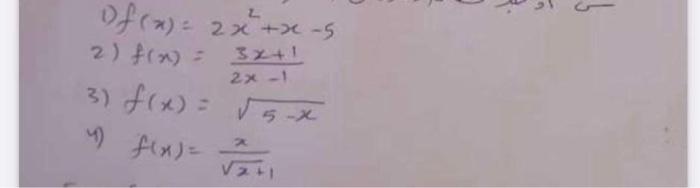 س أوجد
1) f(x) = 2x² + x - 5
2) f(x) = (3x+1)/(2x-1)
3) f(x) = √(5-x)
4) f(x) = x/(√x+1)